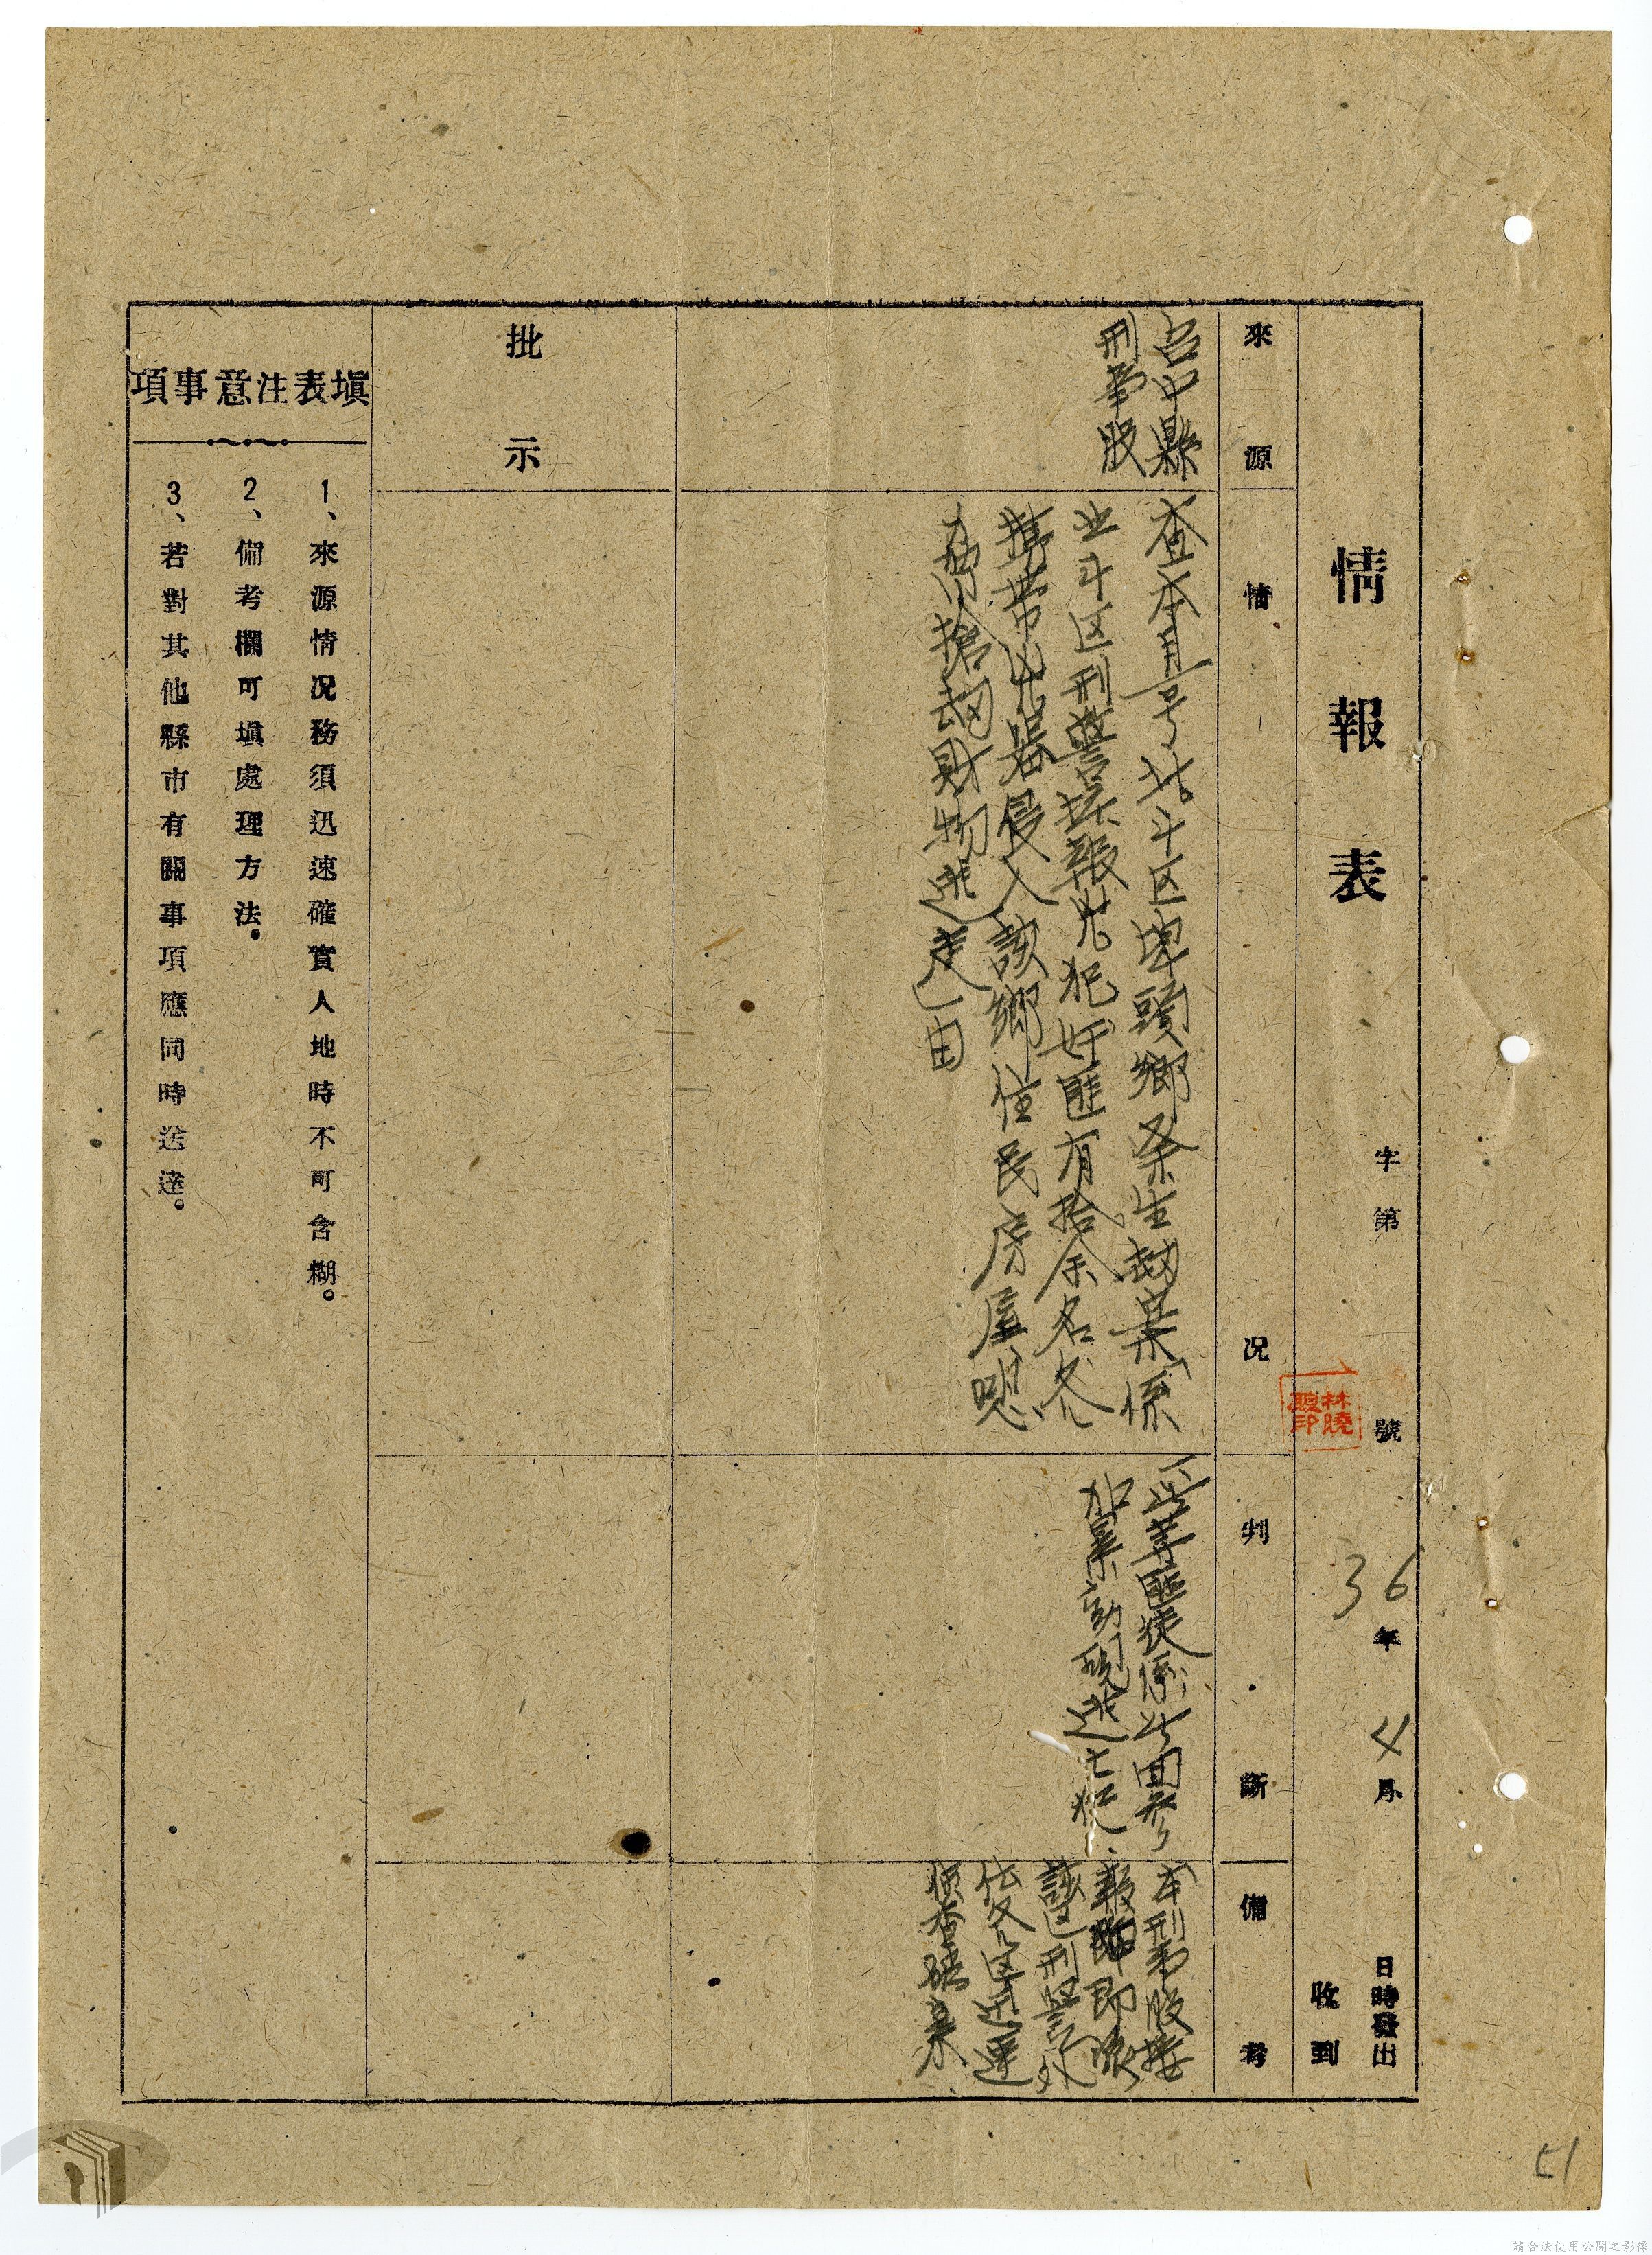 情報表
字第 號
36年4月 日時發出
收到
林曉
印
來源
情况
判斷
備考
台中縣
刑事股
查本月一号北斗区埤頭鄉發生劫案係
北斗区刑警報犯奸匪有拾余名各
携帶兇器侵入該鄉住民房屋
搶劫財物逃走由
此等匪徒係此回參
加暴動現逃亡犯
本刑事股接
報即即派
該区刑警外
各区迅速
偵查破案
批示
填表注意事項
1、來源情况務須迅速確實人地時不可含糊。
2、備考欄可填處理方法。
3、若對其他縣市有關事項應同時送達。
51
請合法使用公開之影像